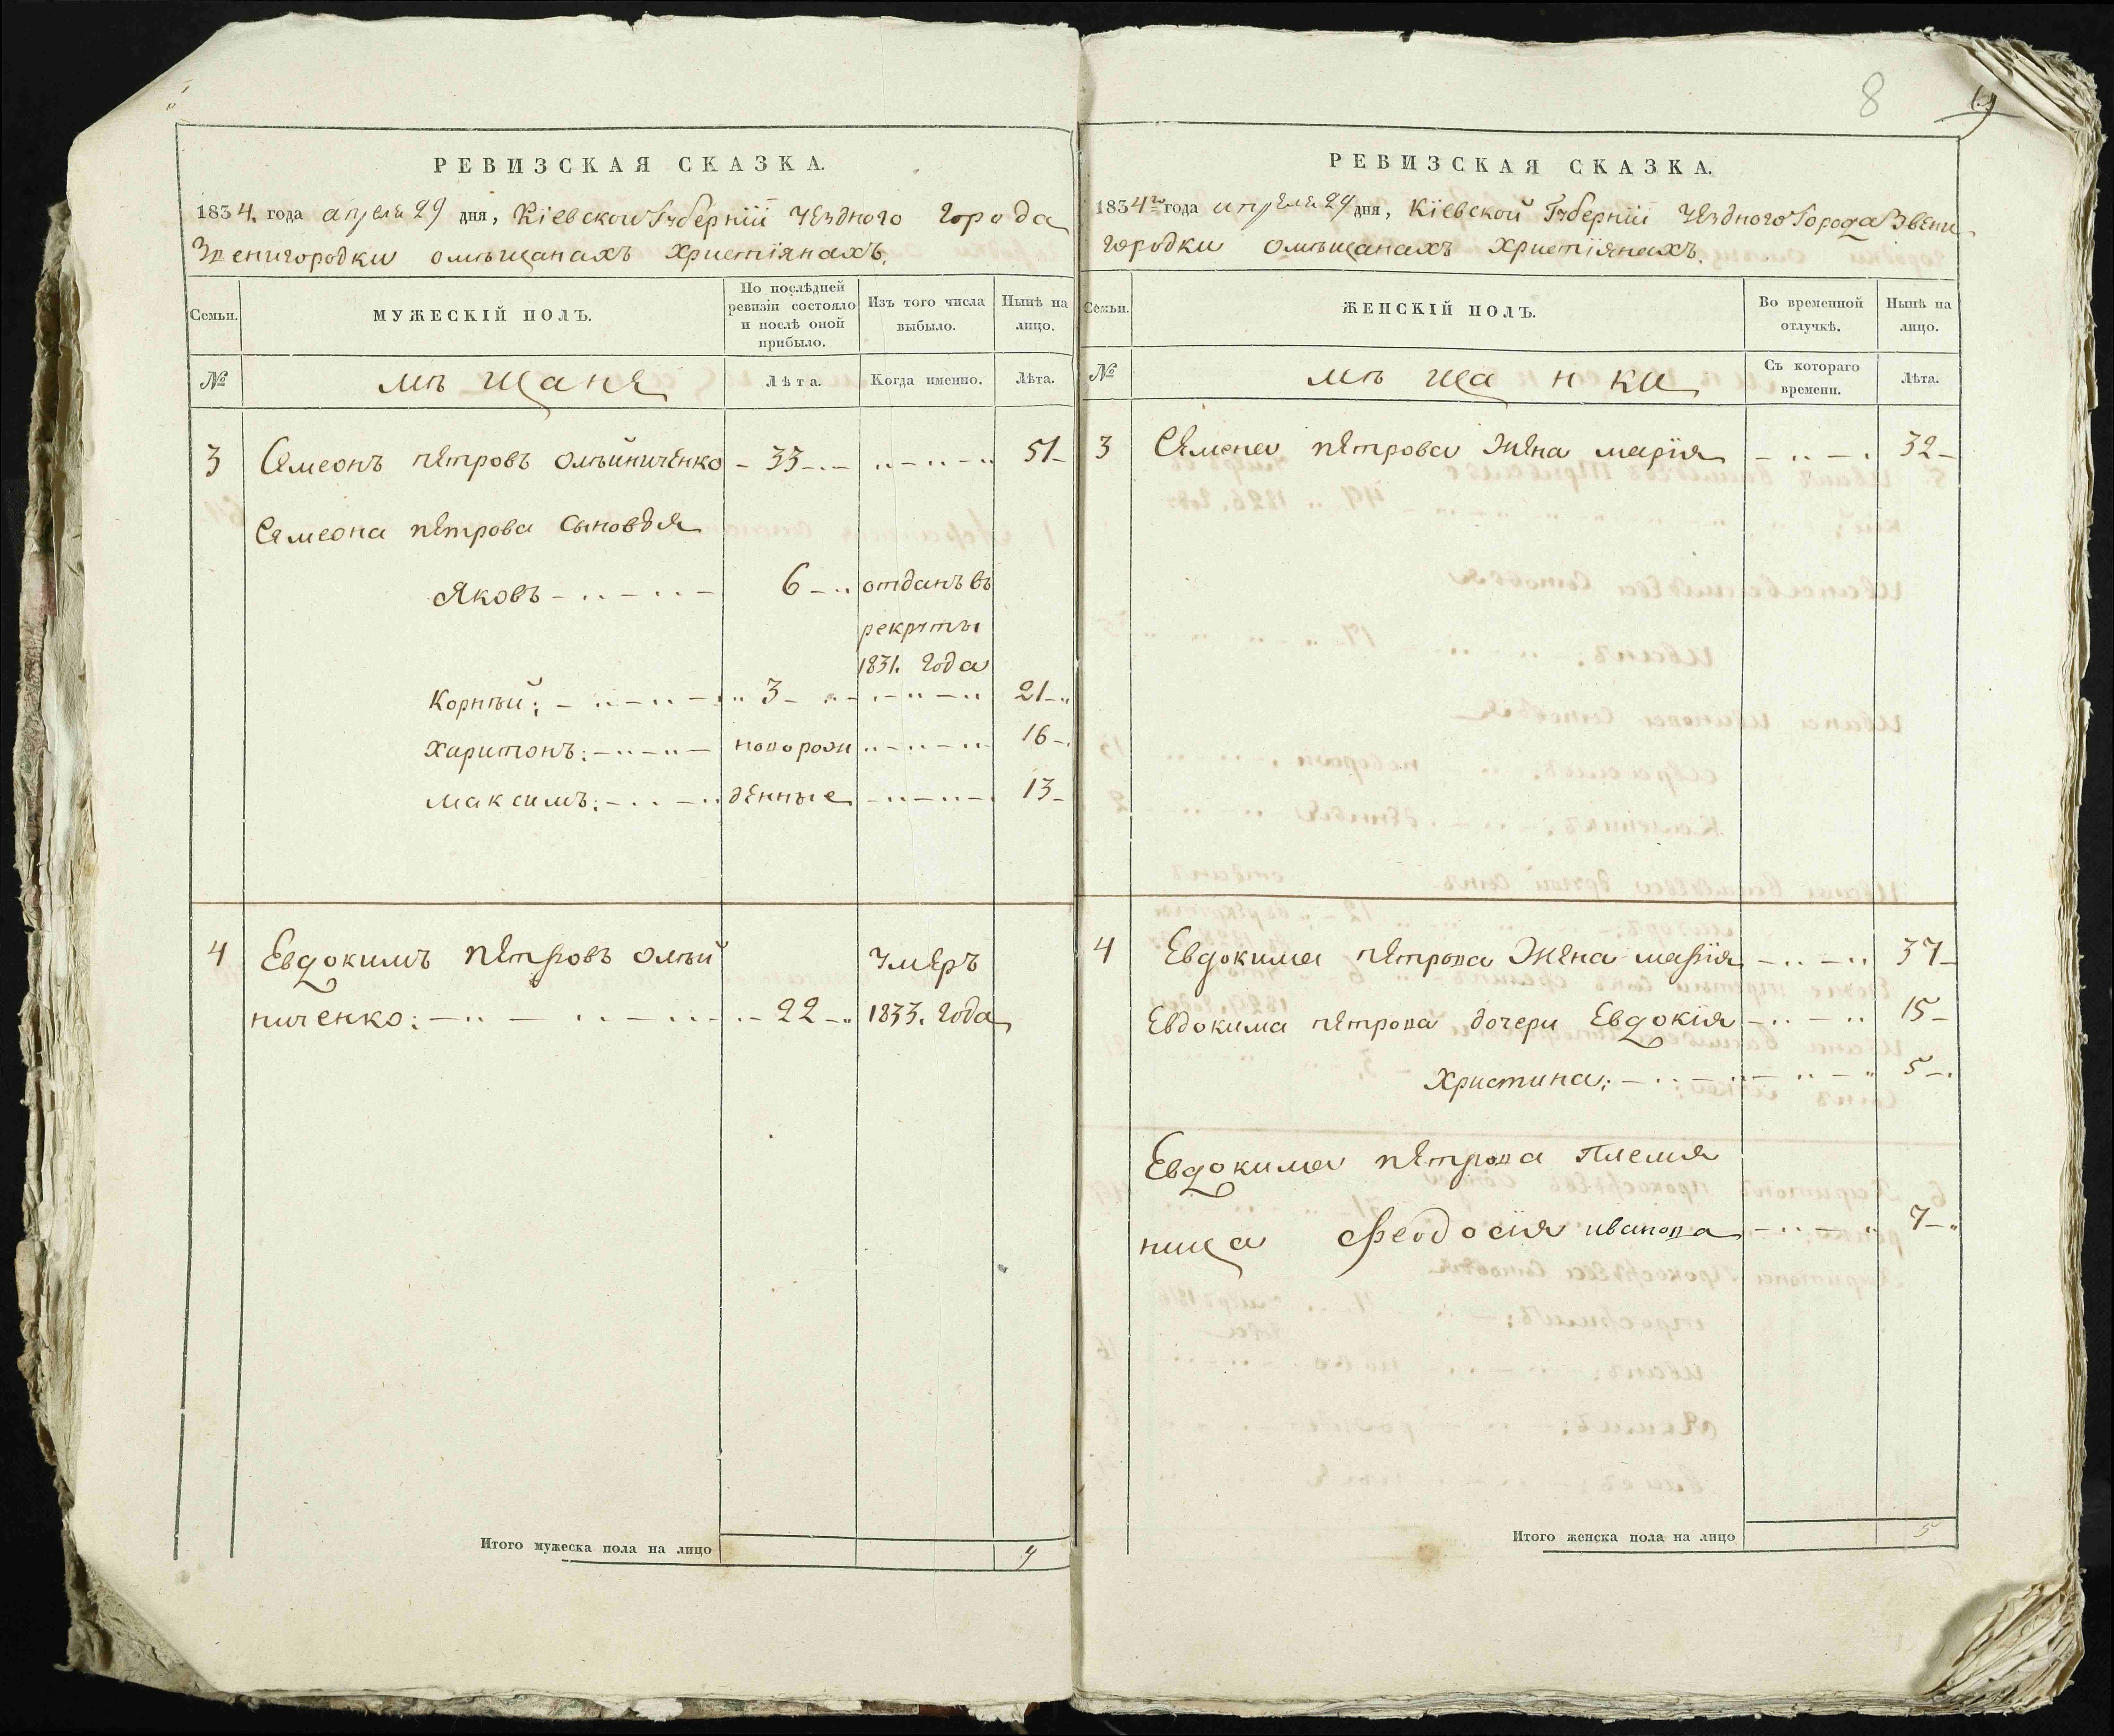 8
РЕВИЗСКАЯ СКАЗКА.
1834. года апреля 29 дня, Кіевской Губерніи Уездного города
Звенигородки омѣщанахъ Христіянахъ.
Семьи.
МУЖЕСКІЙ ПОЛЪ.
По послѣдней
ревизіи состояло
и послѣ оной
прибыло.
Изъ того числа
выбыло.
Нынѣ на
лицо.
№
мѣщане
Лѣта.
Когда именно.
Лѣта.
3 Семеонъ петровъ олѣйниченко - 33 51
Семеона петрова сыновья
Яковъ 6 отданъ въ
рекруты
1831. года
Корнѣй: 3 21
Харитонъ: новорож 16
Максимъ: денные 13
4 Евдокимъ петровъ олѣй умеръ
ниченко: 22 1833. года
Итого мужеска пола на лицо 4
РЕВИЗСКАЯ СКАЗКА.
1834 года апреля 29 дня, Кіевской Губерніи Уездного Города Звени
городки омѣщанахъ Христіянахъ.
Семьи.
ЖЕНСКІЙ ПОЛЪ.
Во временной
отлучкѣ.
Нынѣ на
лицо.
№
мѣщанки
Съ котораго
времени.
Лѣта.
3 Семена петрова жена марія 32
4 Евдокима петрова жена марія 37
Евдокима петрова дочери Евдокія 15
Христина: 5
Евдокима петрова племя
ница Феодосія иванова 7
Итого женска пола на лицо 5